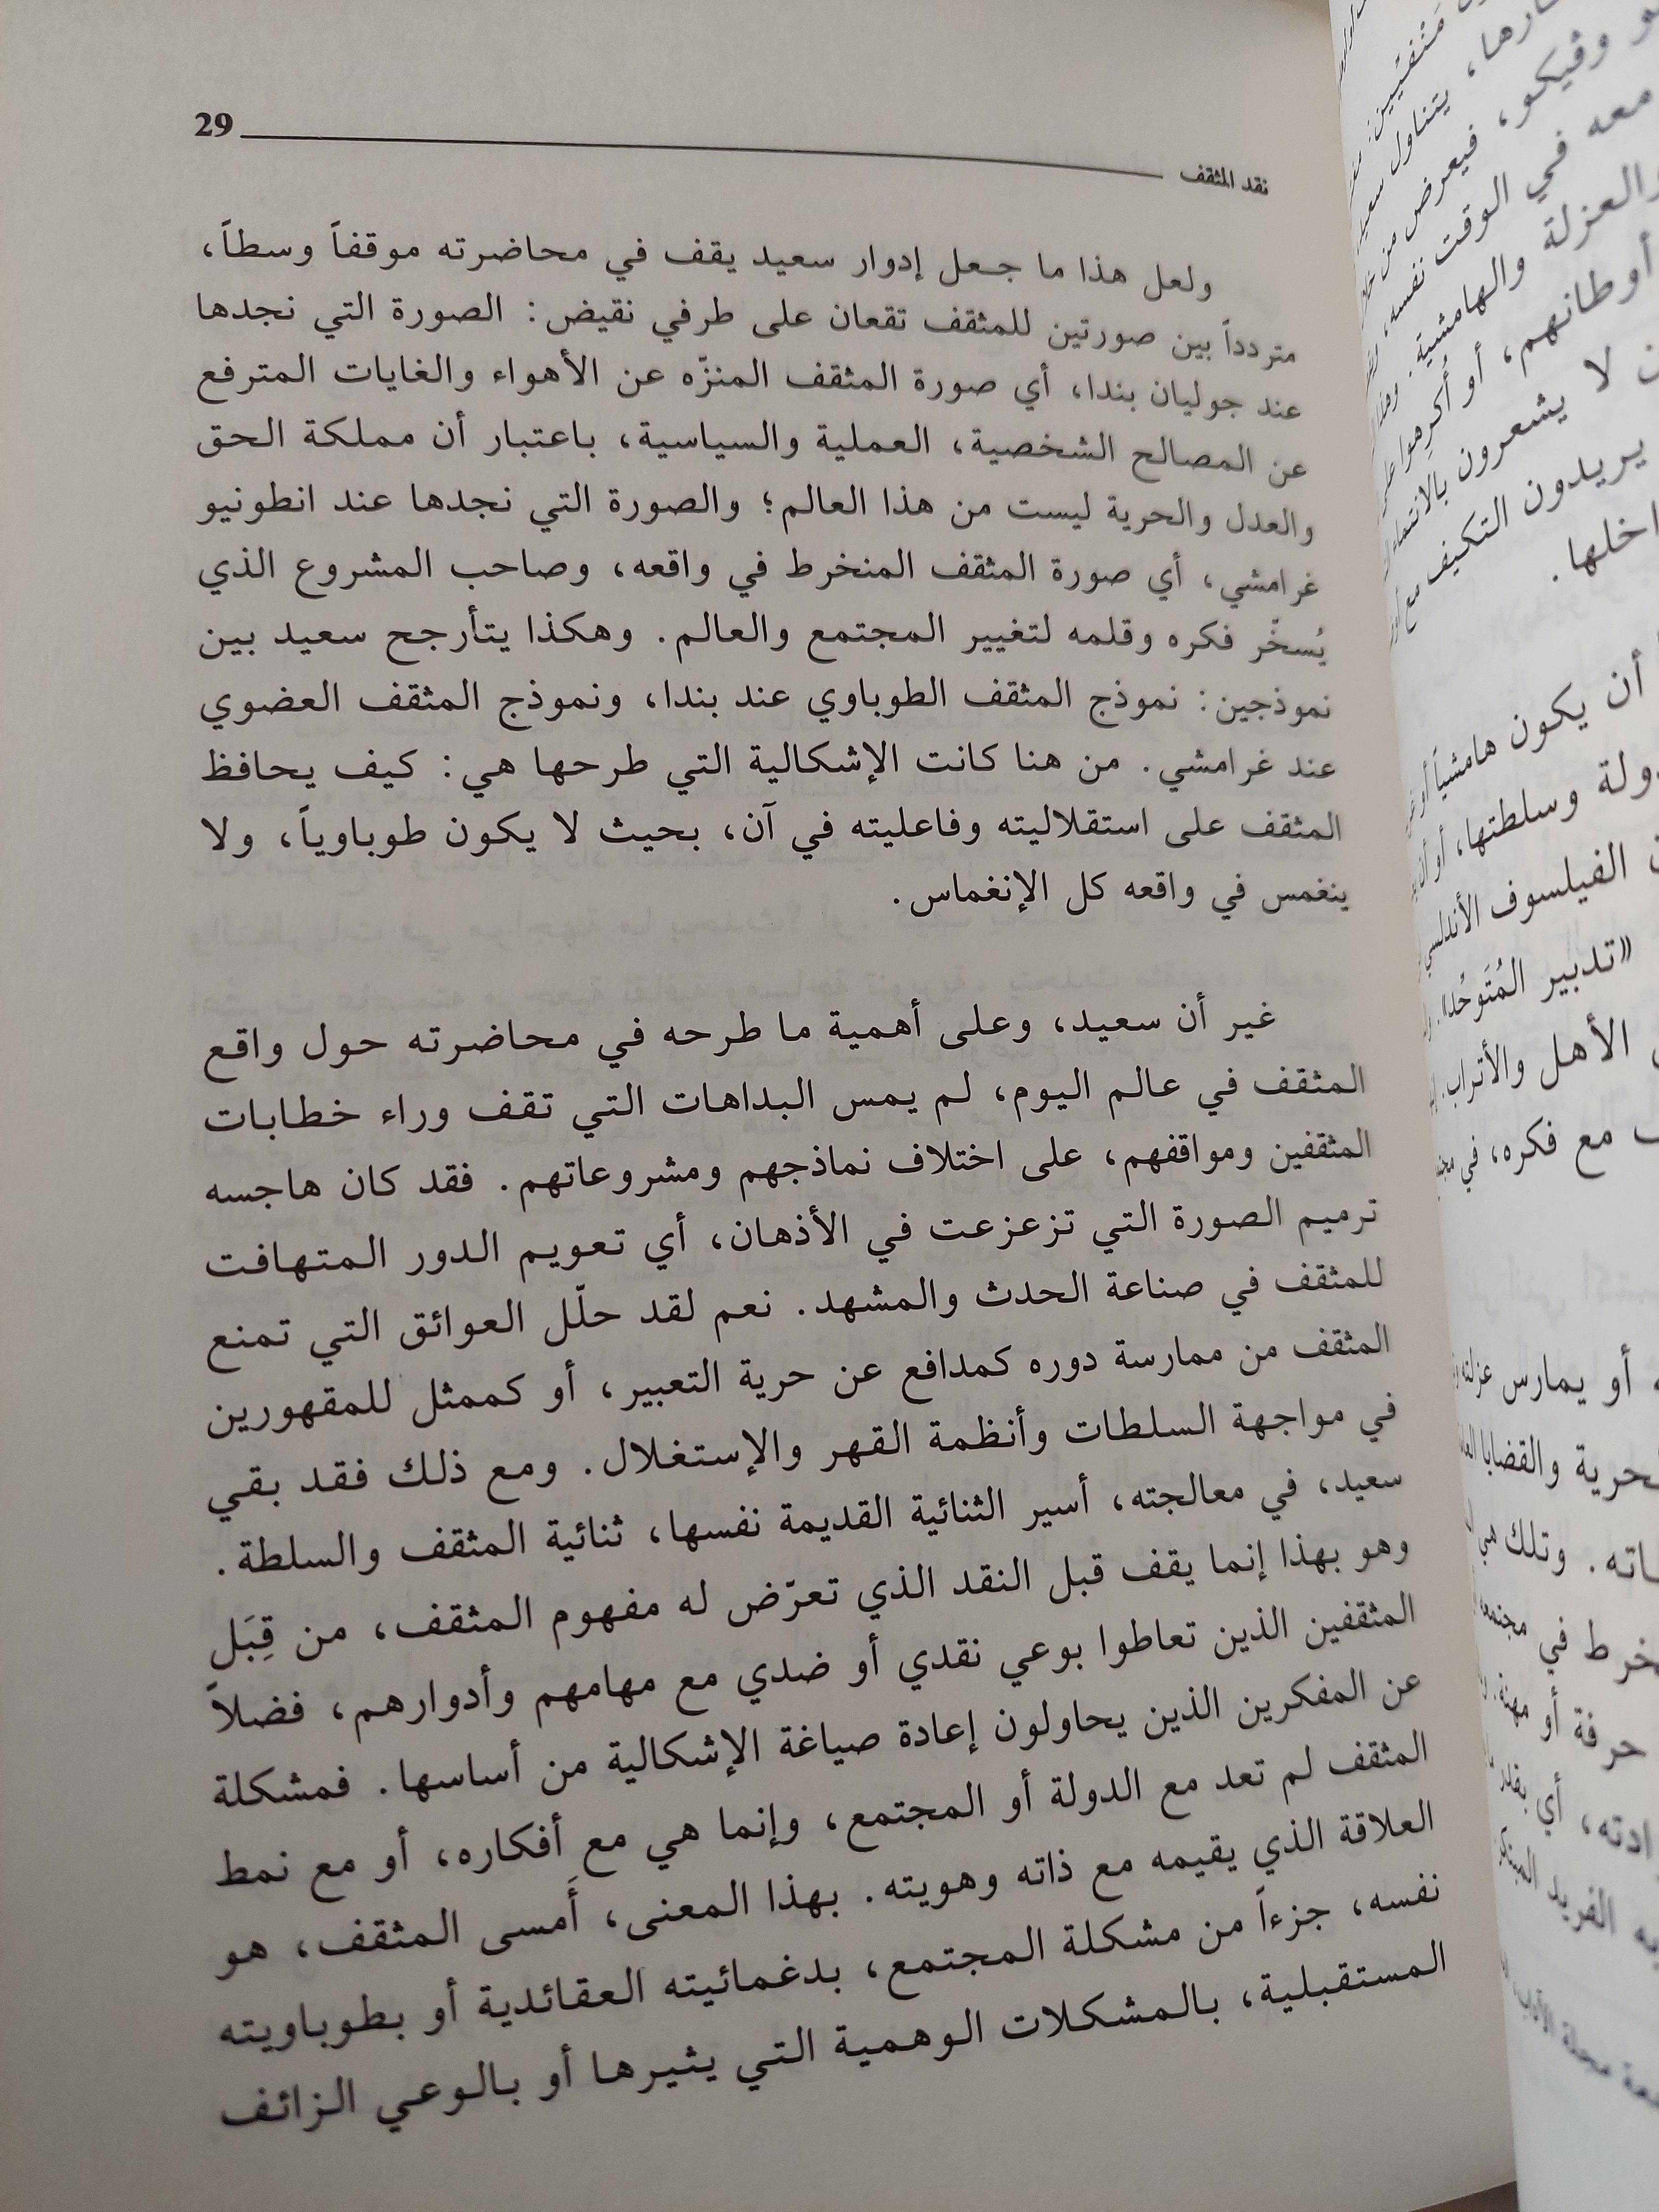 نقد المثقف 29
ولعل هذا ما جعل إدوار سعيد يقف في محاضرته موقفاً وسطاً،
متردداً بين صورتين للمثقف تقعان على طرفي نقيض: الصورة التي نجدها
عند جوليان بندا، أي صورة المثقف المنزّه عن الأهواء والغايات المترفع
عن المصالح الشخصية، العملية والسياسية، باعتبار أن مملكة الحق
والعدل والحرية ليست من هذا العالم؛ والصورة التي نجدها عند انطونيو
غرامشي، أي صورة المثقف المنخرط في واقعه، وصاحب المشروع الذي
يُسخّر فكره وقلمه لتغيير المجتمع والعالم. وهكذا يتأرجح سعيد بين
نموذجين: نموذج المثقف الطوباوي عند بندا، ونموذج المثقف العضوي
عند غرامشي. من هنا كانت الإشكالية التي طرحها هي: كيف يحافظ
المثقف على استقلاليته وفاعليته في آن، بحيث لا يكون طوباوياً، ولا
ينغمس في واقعه كل الإنغماس.
غير أن سعيد، وعلى أهمية ما طرحه في محاضرته حول واقع
المثقف في عالم اليوم، لم يمس البداهات التي تقف وراء خطابات
المثقفين ومواقفهم، على اختلاف نماذجهم ومشروعاتهم. فقد كان هاجسه
ترميم الصورة التي تزعزعت في الأذهان، أي تعويم الدور المتهافت
للمثقف في صناعة الحدث والمشهد. نعم لقد حلّل العوائق التي تمنع
المثقف من ممارسة دوره كمدافع عن حرية التعبير، أو كممثل للمقهورين
في مواجهة السلطات وأنظمة القهر والإستغلال. ومع ذلك فقد بقي
سعيد، في معالجته، أسير الثنائية القديمة نفسها، ثنائية المثقف والسلطة.
وهو بهذا إنما يقف قبل النقد الذي تعرّض له مفهوم المثقف، من قِبَل
المثقفين الذين تعاطوا بوعي نقدي أو ضدي مع مهامهم وأدوارهم، فضلاً
عن المفكرين الذين يحاولون إعادة صياغة الإشكالية من أساسها. فمشكلة
المثقف لم تعد مع الدولة أو المجتمع، وإنما هي مع أفكاره، أو مع نمط
العلاقة الذي يقيمه مع ذاته وهويته. بهذا المعنى، أَمسى المثقف، هو
نفسه، جزءاً من مشكلة المجتمع، بدغمائيته العقائدية أو بطوباويته
المستقبلية، بالمشكلات الوهمية التي يثيرها أو بالوعي الزائف
وفيكو، فيعرض من
معه في الوقت نفسه،
والعزلة والهامشية.
أوطانهم، أو أُكرِموا على
لا يشعرون بالانتماء
يريدون التكيف مع
أن يكون هامشياً أو
وسلطتها، أو أن
الفيلسوف الأندلسي
«تدبير المُتَوحُد».
الأهل والأتراب.
مع فكره، في
أو يمارس عزلته
والقضايا
وتلك هي
في مجتمعه
حرفة أو مهنة.
أي
الفريد